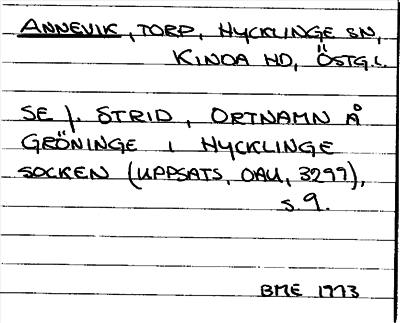 ANNEVIK, TORP, HYCKLINGE SN,
KINDA HD, ÖSTG.L.
SE J. STRID, ORTNAMN Å
GRÖNINGE I HYCKLINGE
SOCKEN (UPPSATS, OAU, 3297),
S. 9.
BME 1973